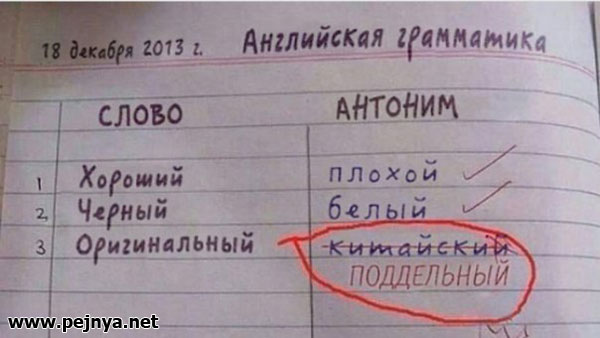 18 декабря 2013 г. Английская грамматика
СЛОВО АНТОНИМ
1 Хороший плохой
2 Черный белый
3 Оригинальный китайский
ПОДДЕЛЬНЫЙ
www.pejnya.net